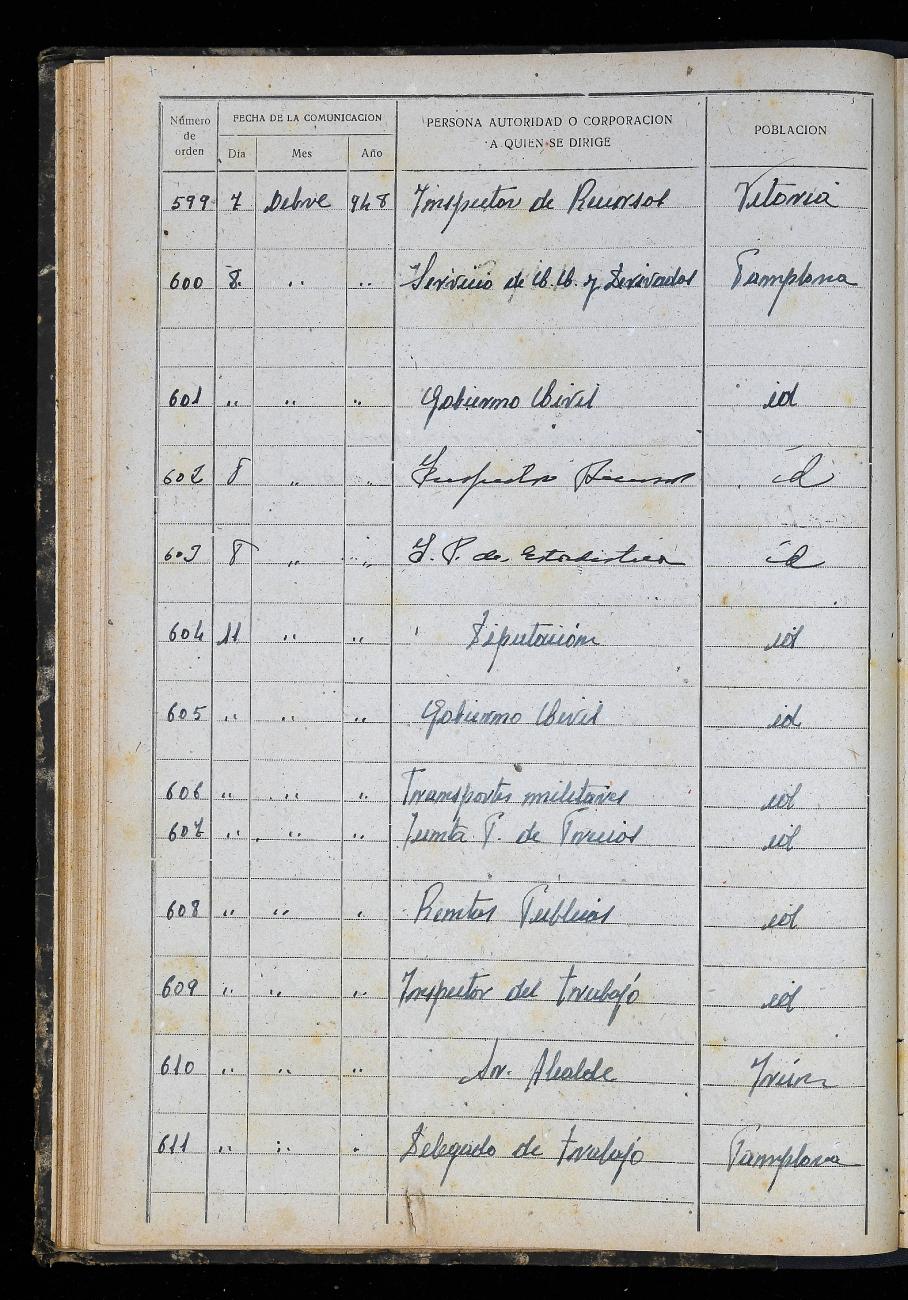 Número de orden FECHA DE LA COMUNICACION PERSONA AUTORIDAD O CORPORACION A QUIEN SE DIRIGE POBLACION
Día Mes Año
599 7 Dcbre 948 Inspector de Recursos Vitoria
600 8. " " Servicio de C.C. y Derivados Pamplona
601 " " " Gobierno Civil id
602 8 " " Inspector Recursos id
603 8 " " I. P. de Estadistica id
604 11 " " Diputación id
605 " " " Gobierno Civil id
606 " " " Transportes militares id
607 " " " Junta P. de Precios id
608 " " " Rentas Publicas id
609 " " " Inspector del trabajo id
610 " " " Sr. Alcalde Irún
611 " " " Delegado de trabajo Pamplona